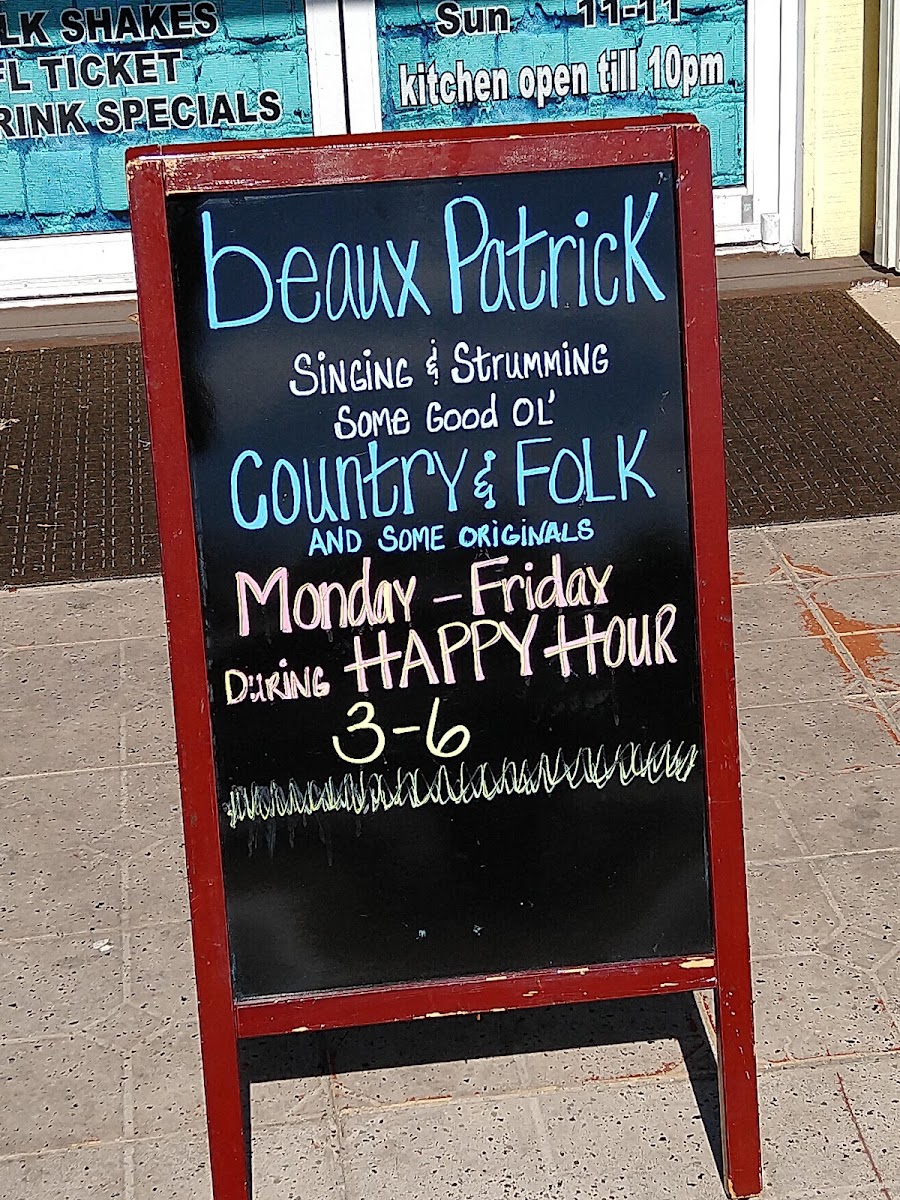 LK SHAKES
FL TICKET
RINK SPECIALS
Sun 11-11
kitchen open till 10pm
beaux Patrick
Singing & Strumming
Some Good Ol'
Country & Folk
AND SOME ORIGINALS
Monday - Friday
During HAPPY HOUR
3-6